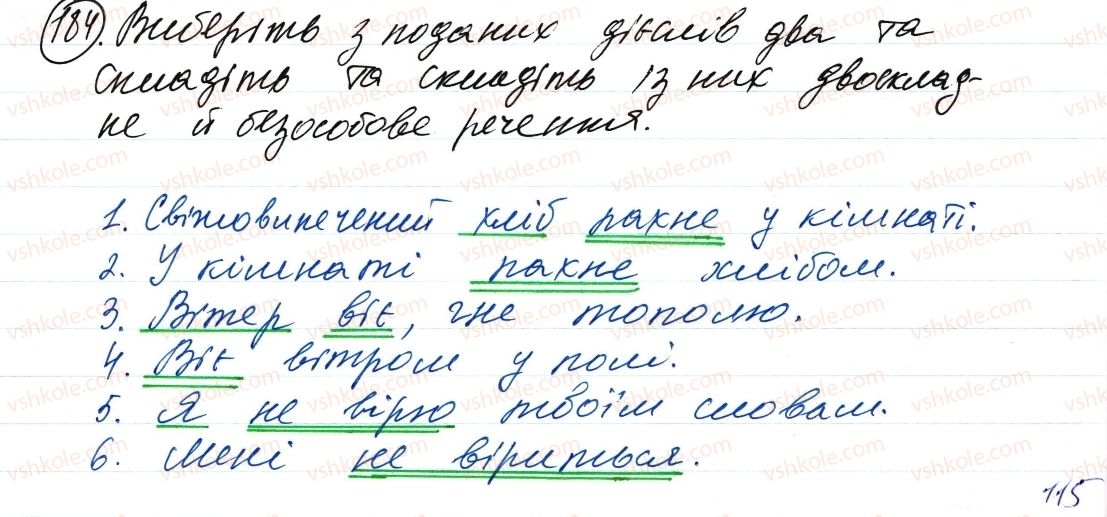 184. Виберіть з поданих дієслів два та
складіть та складіть із них двосклад-
не й безособове речення.
1. Свіжовипечений хліб пахне у кімнаті.
2. У кімнаті пахне хлібом.
3. Вітер віє, гне тополю.
4. Віє вітром у полі.
5. Я не вірю твоїм словам.
6. Мені не віриться.
115